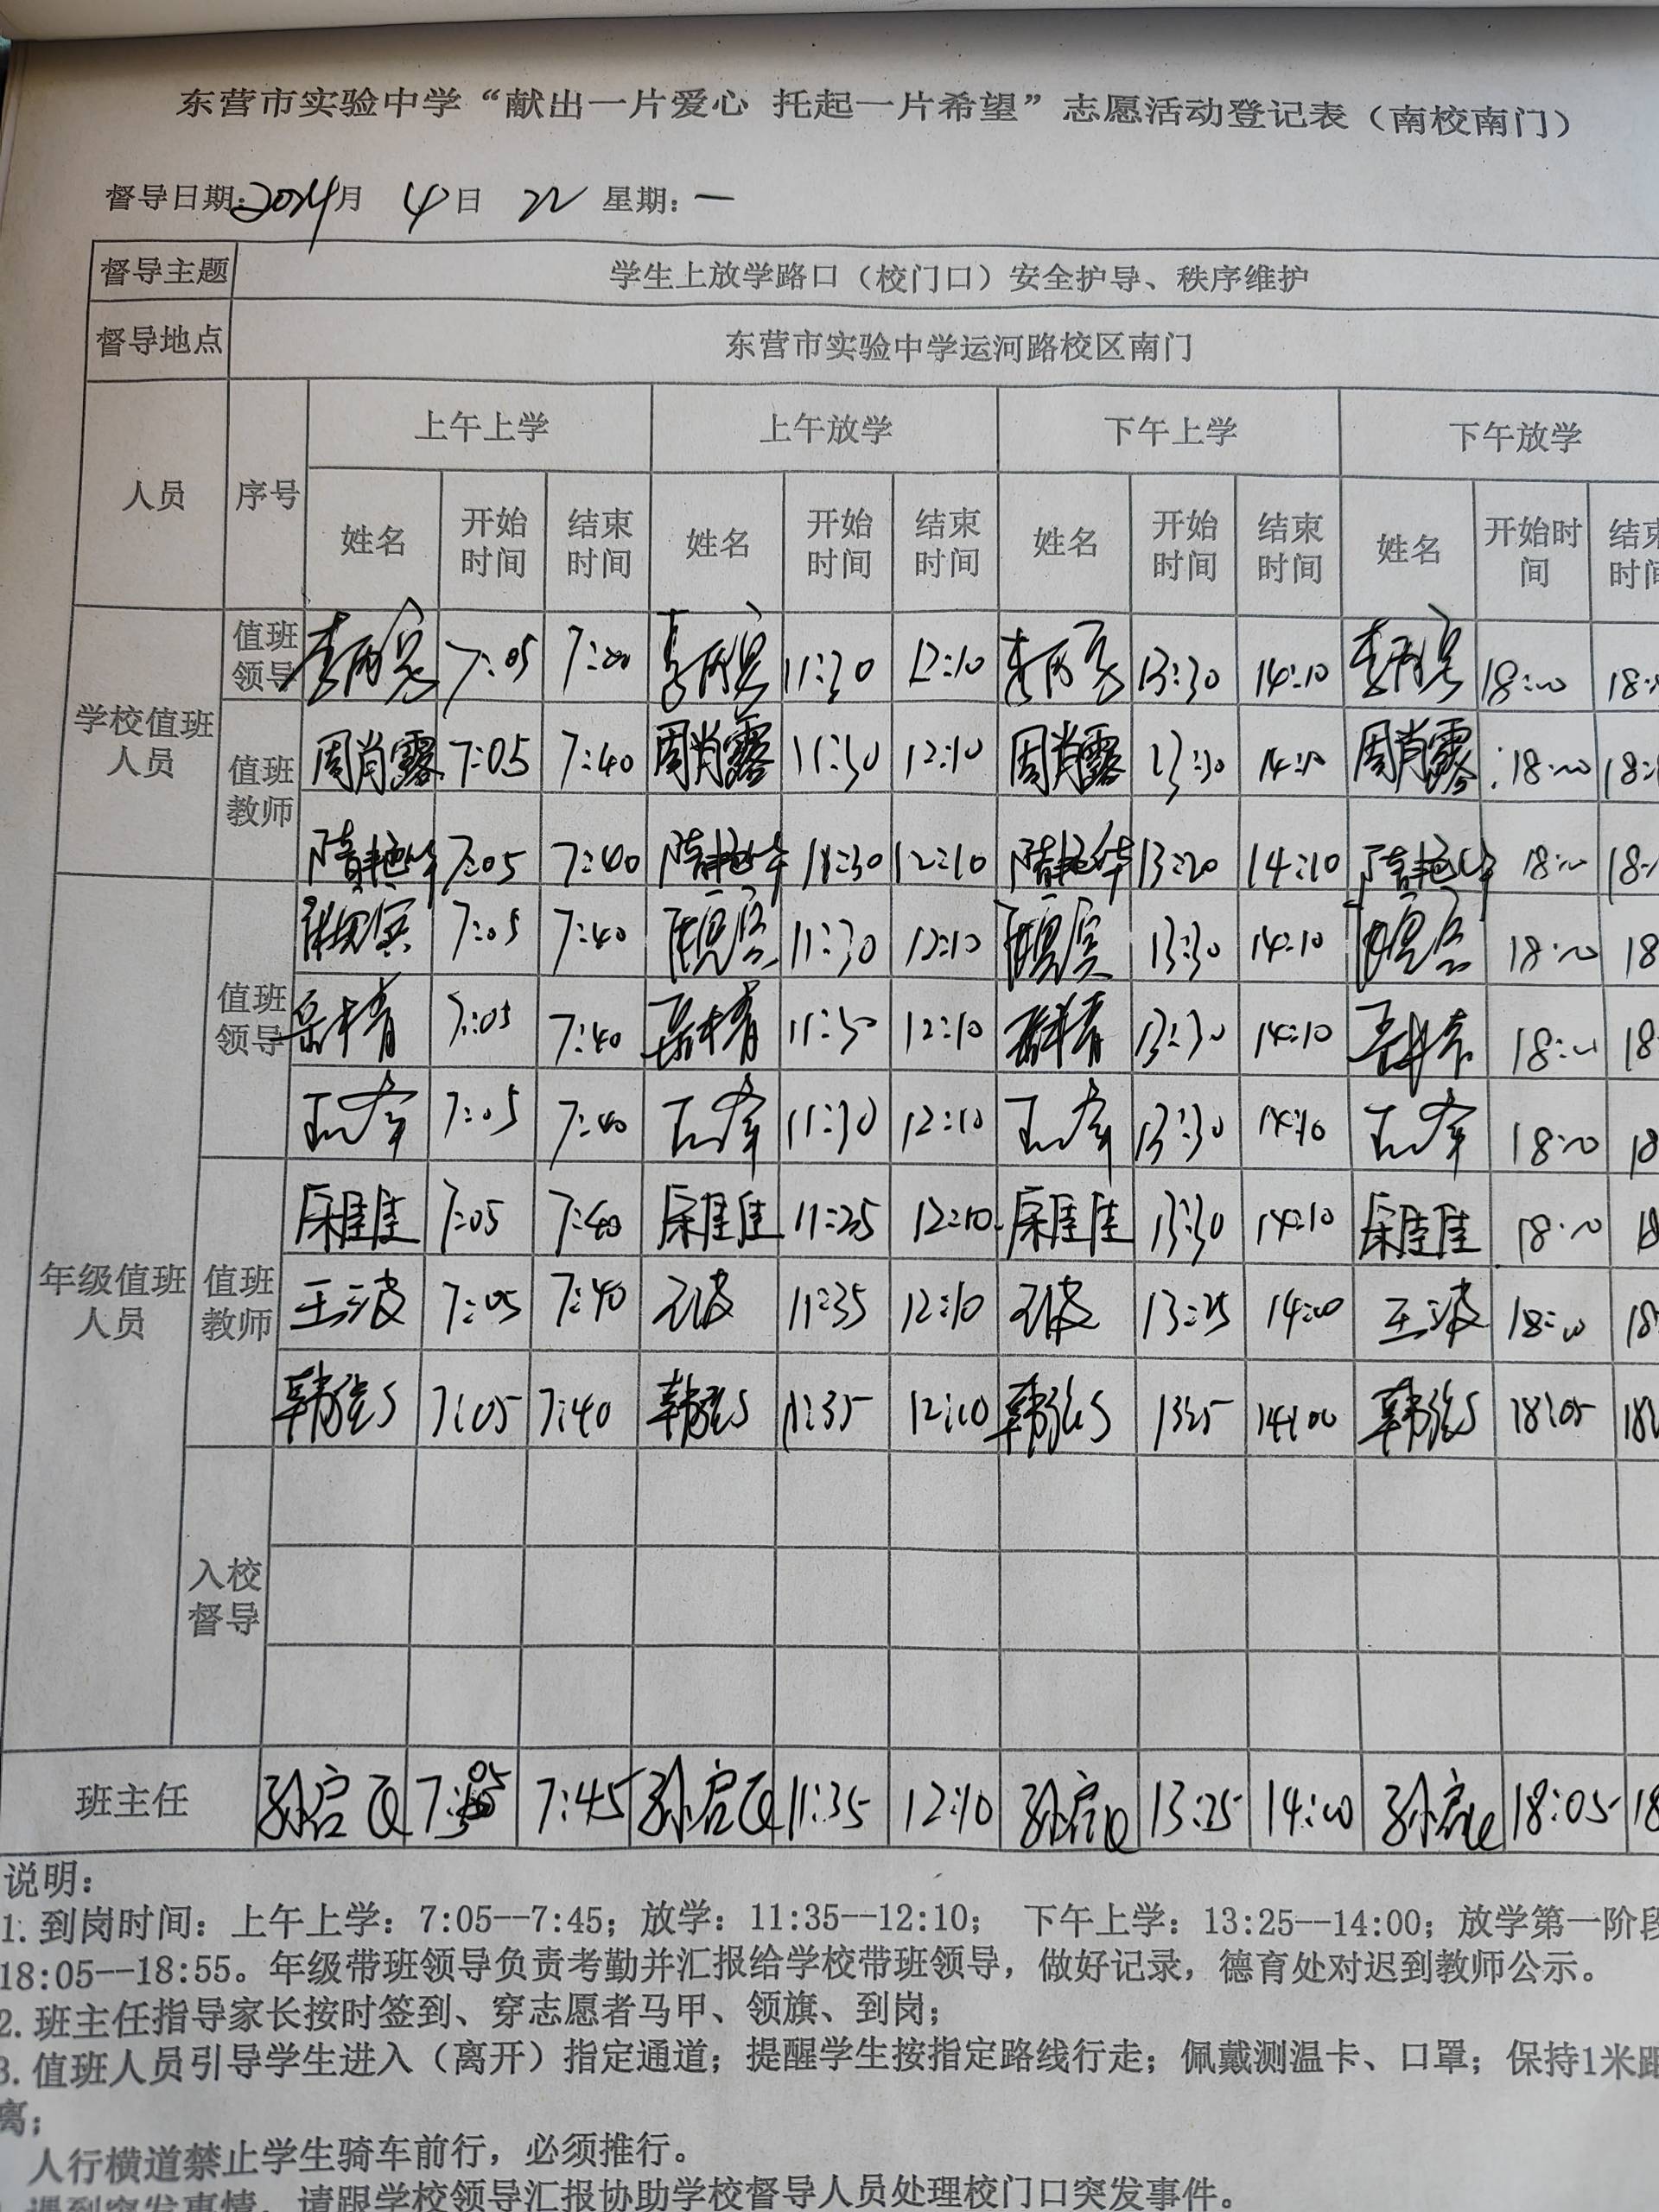 东营市实验中学“献出一片爱心 托起一片希望”志愿活动登记表（南校南门）
督导日期：2024月 4日 22 星期：一
督导主题 学生上放学路口（校门口）安全护导、秩序维护
督导地点 东营市实验中学运河路校区南门
人员 序号 上午上学 上午放学 下午上学 下午放学
姓名 开始时间 结束时间 姓名 开始时间 结束时间 姓名 开始时间 结束时间 姓名 开始时间 结束时间
学校值班人员
值班领导 7:05 11:30 12:10 13:30 14:10
值班教师 周肖露 7:05 7:40 周肖露 11:30 12:10 周肖露 13:30 14:10 周肖露 18:00 18:
隋艳华 7:05 7:40 隋艳华 11:30 12:10 隋艳华 13:20 14:10 隋艳华 18:00 18:
年级值班人员
值班领导 7:05 7:40 11:30 12:10 13:30 14:10 18:00 18
7:05 7:40 11:30 12:10 13:30 14:10 18:00 18
7:05 7:40 11:30 12:10 13:30 14:10 18:00 18
值班教师 宋佳佳 7:05 7:40 宋佳佳 11:25 12:10 宋佳佳 13:30 14:10 宋佳佳 18:00 18
王波 7:05 7:40 王波 11:35 12:10 王波 13:25 14:00 王波 18:00 18
7:05 7:40 11:35 12:10 1325 14:00 18:05 18
入校督导
班主任 7:05 7:45 11:35 12:10 13:25 14:00 18:05 18
说明：
1. 到岗时间：上午上学：7:05--7:45；放学：11:35--12:10； 下午上学：13:25--14:00；放学第一阶段
18:05--18:55。年级带班领导负责考勤并汇报给学校带班领导，做好记录，德育处对迟到教师公示。
2. 班主任指导家长按时签到、穿志愿者马甲、领旗、到岗；
3. 值班人员引导学生进入（离开）指定通道；提醒学生按指定路线行走；佩戴测温卡、口罩；保持1米距
离；
人行横道禁止学生骑车前行，必须推行。
遇到突发事情，请跟学校领导汇报协助学校督导人员处理校门口突发事件。